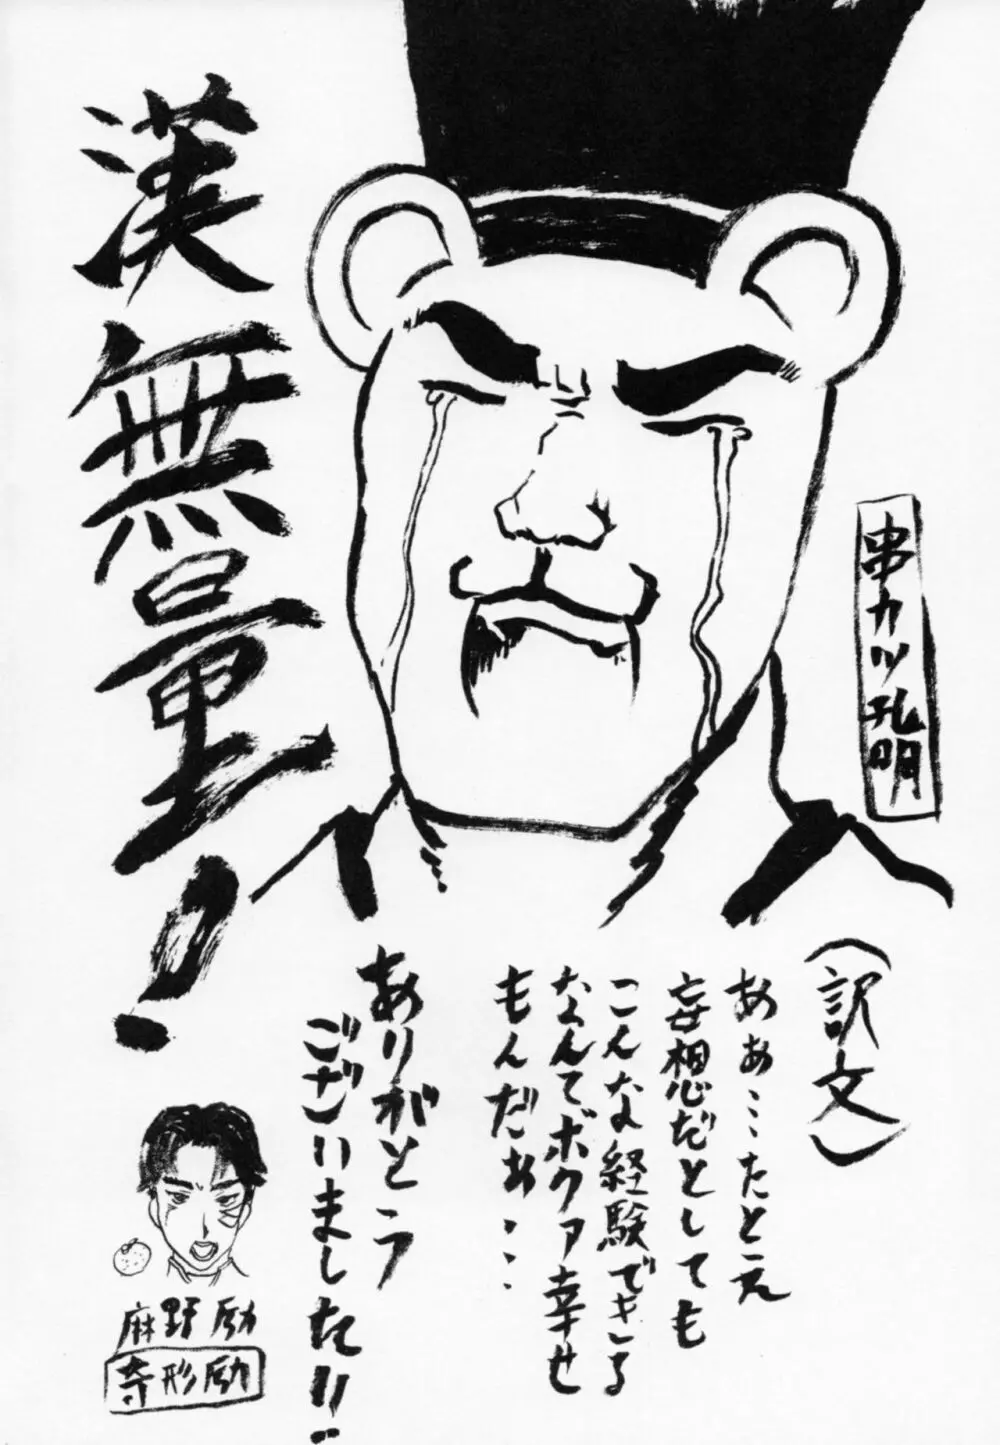 漢無量！
串カツ孔明
（訳文）
あぁ…たとえ
妄想だとしても
こんな経験できる
なんてボクァ幸せ
もんだぁ・・・
ありがとう
ございました!!
麻野励
寺形励